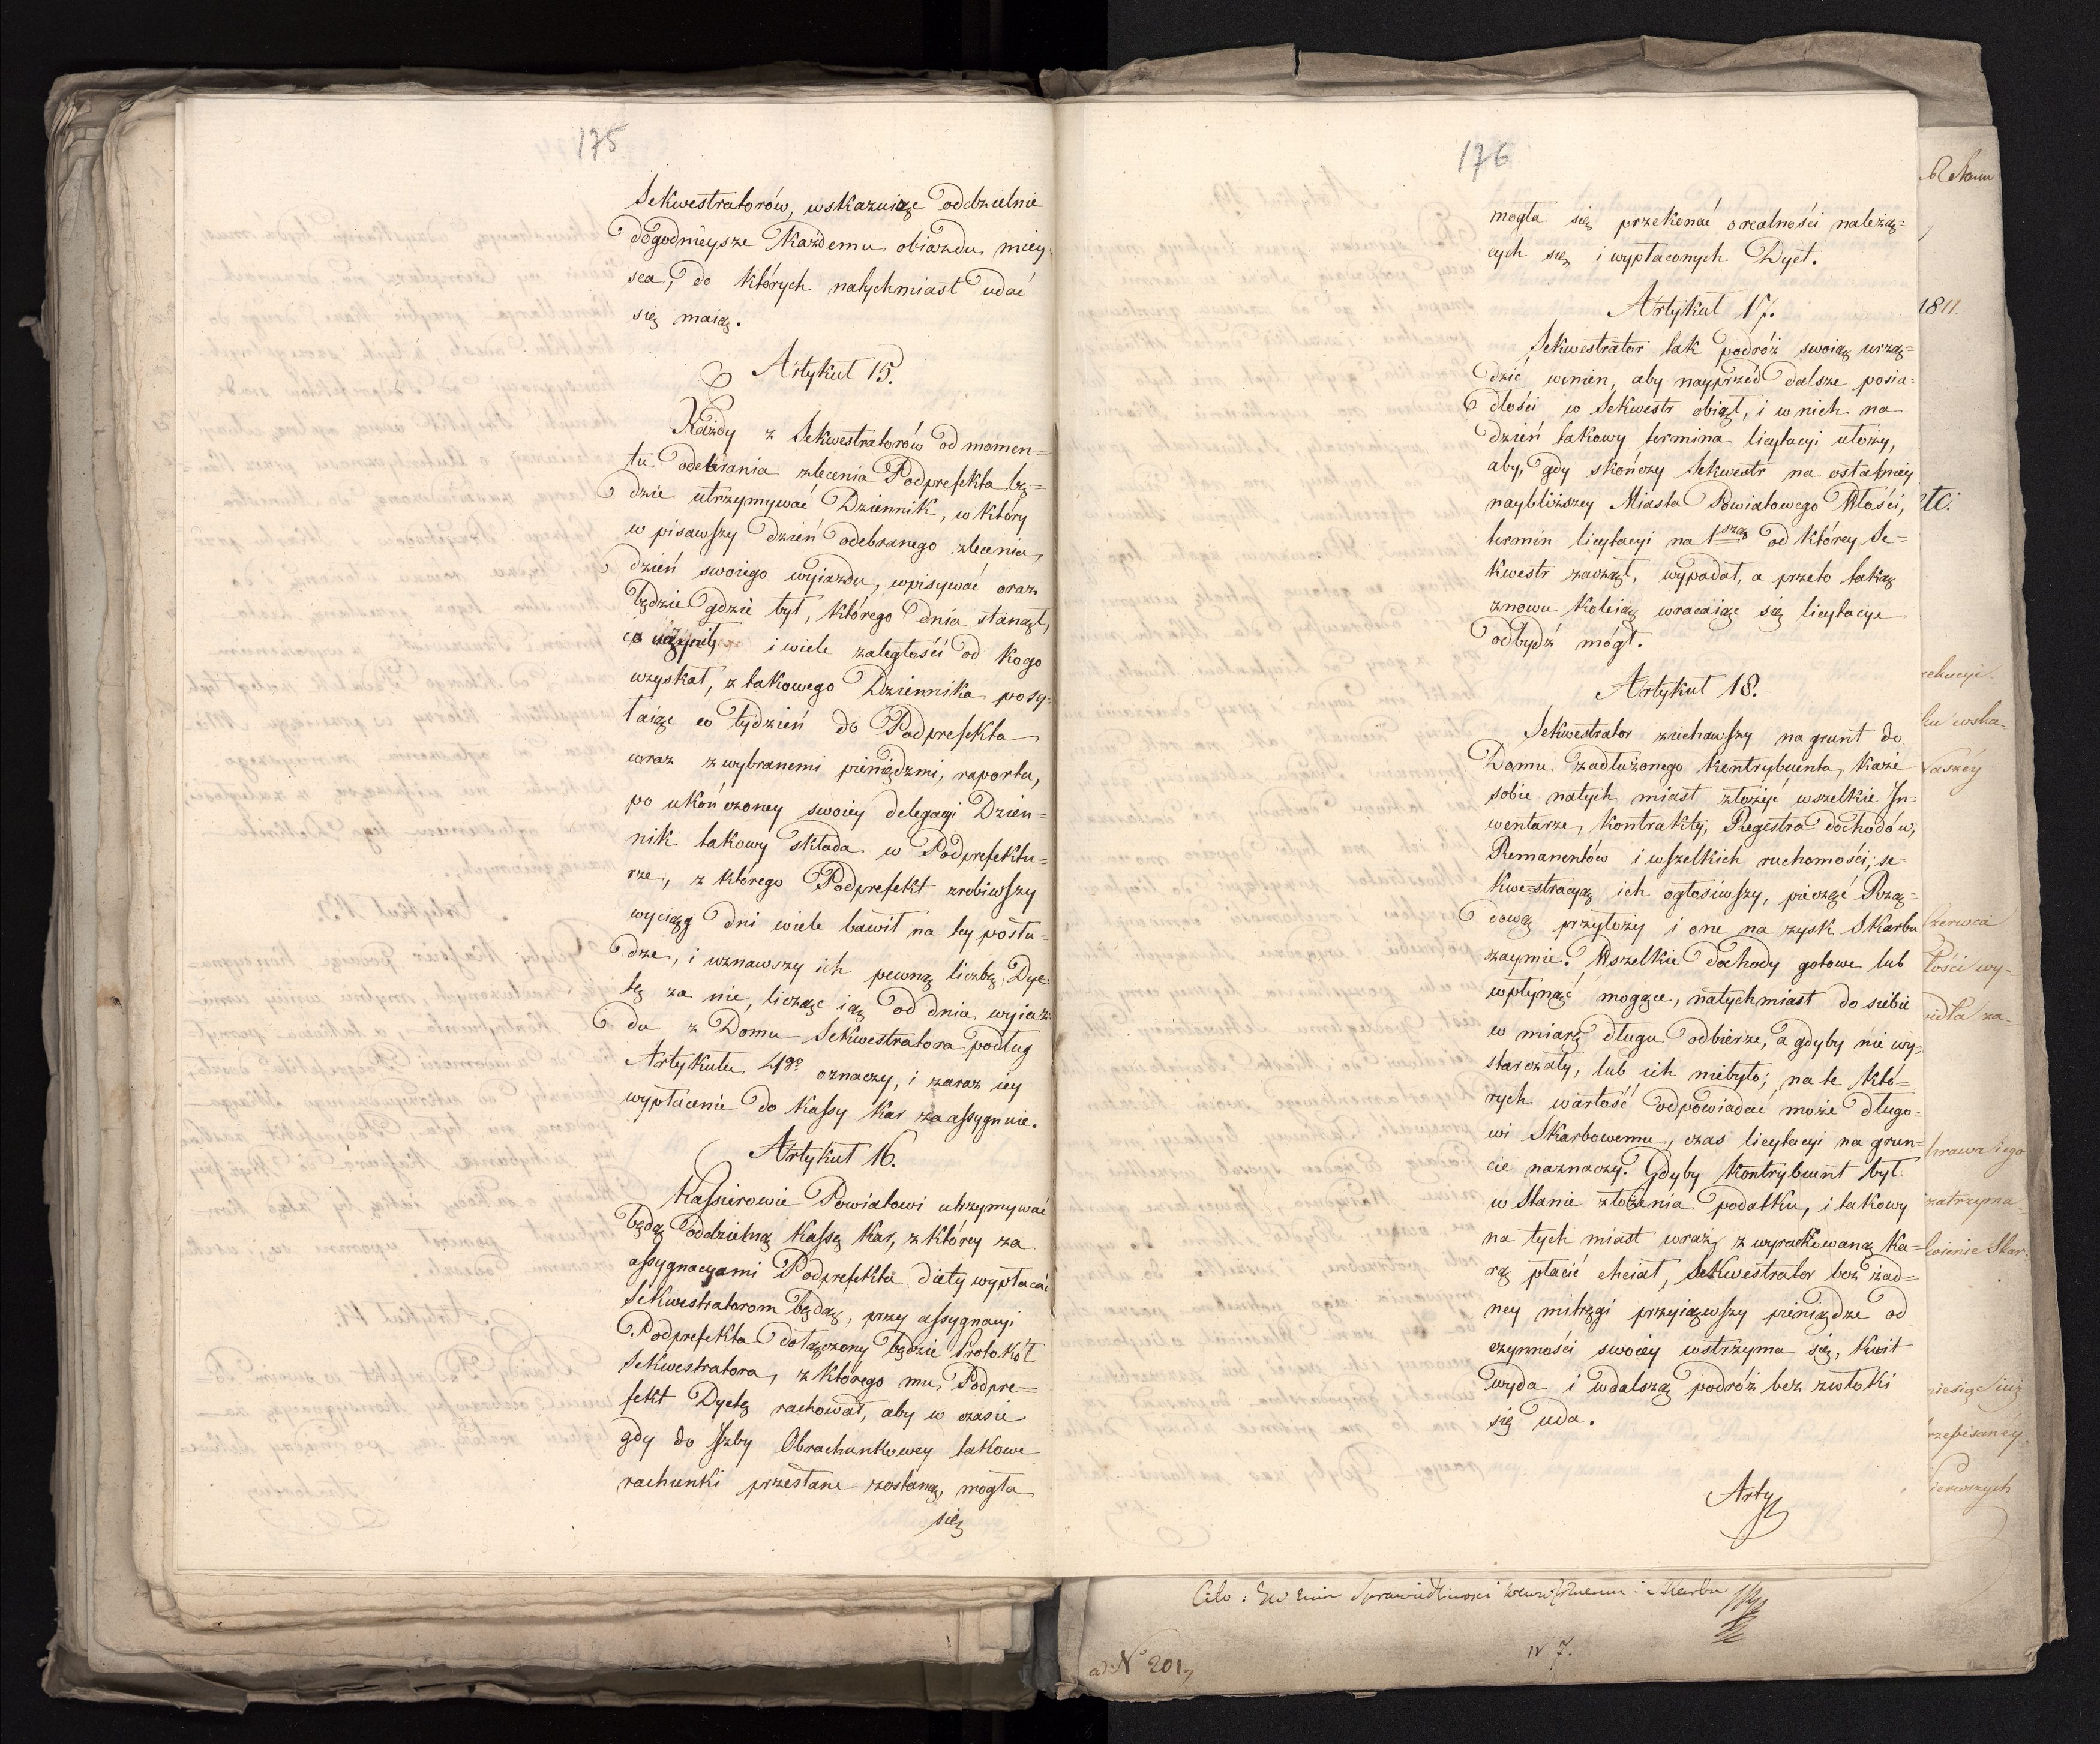 175
Sekwestratorów, wskazuiąc oddzielnie
dogodnieysze Każdemu obiazdu miey-
sca, do których natychmiast udać
się maią.
Artykuł 15.
Każdy z Sekwestratorów od momen=
tu odebrania zlecenia Podprefekta bę=
dzie utrzymywać Dziennik, w który
w pisawszy dzień odebranego zlecenia,
dzień swoiego wyiazdu, wpisywać oraz
będzie gdzie był, którego dnia stanął,
co uczynił, i wiele zaległości od kogo
uzyskał, z takowego Dziennika posy-
łaiąc co tydzień do Podprefekta
wraz z wybranemi pieniądzmi, raporta,
po ukończoney swoiey delegacyi Dzien=
nik takowy składa w Podprefektu=
rze, z którego Podprefekt zrobiwszy
wyciąg dni wiele bawił na tey posłu=
dze, i uznawszy ich pewną liczbę, Dye-
tę za nie, licząc ią od dnia wyiaz-
du z Domu Sekwestratora podług
Artykułu 49º oznaczy, i zaraz iey
wypłacenie do Kassy Kar zaassygnuie.
Artykuł 16.
Kassierowie Powiatowi utrzymywać
będą oddzielną Kassę Kar, z którey za
assygnacyami Podprefekta diety wypłacać
Sekwestratorom będą, przy assygnacyi
Podprefekta dołączony będzie Protokół
Sekwestratora, z którego mu Podpre=
fekt Dyetę rachował, aby w czasie
gdy do Izby Obrachunkowey takowe
rachunki przesłane zostaną, mogła
się
176
mogła się przekonać o realności należą=
cych się i wypłaconych Dyet.
Artykuł 17.
Sekwestrator tak podróż swoią urzą=
dzić winien, aby nayprzód dalsze posia-
dłości w Sekwestr obiął, i w nich na
dzień takowy termina licytacyi ułoży,
aby, gdy skończy Sekwestr na ostatniey
naybliższey Miasta Powiatowego Włości,
termin licytacyi na 1szą od którey Se=
kwestr zaczął, wypadał, a przeto taką
znowu Koleią wracaiąc się licytacye
odbydź mógł.
Artykuł 18.
Sekwestrator ziechawszy na grunt do
Domu zadłużonego kontrybuenta, każe
sobie natych miast złożyć wszelkie In=
wentarze, kontrakty, Regestra dochodów,
Remanentów i wszelkich ruchomości; se-
kwestracyą ich ogłosiwszy, pieczęć Rzą=
dową przyłoży i one na zysk Skarbu
zaymie. Wszelkie dochody gotowe lub
wpłynąć mogące, natychmiast do siebie
w miarę długu odbierze, a gdyby nie wy-
starczały, lub ich niebyło; na te któ=
rych wartość odpowiadać może długo-
wi Skarbowemu, czas licytacyi na grun=
cie naznaczy. Gdyby kontrybuent był
w stanie złożenia podatku, i takowy
na tych miast wraz z wyrachowaną Ka=
rą płacić chciał, Sekwestrator bez żad=
ney mitręgi przyiąwszy pieniądze od
czynności swoiey wstrzyma się, Kwit
wyda i w dalszą podróż bez zwłoki
się uda.
Arty
1811.
etc:
ku wska-
Naszéy
Czerwca
łości wy-
prawa iego
zatrzyma-
rzepisaney
Pierwszych
ad Nº 201,
N 7.